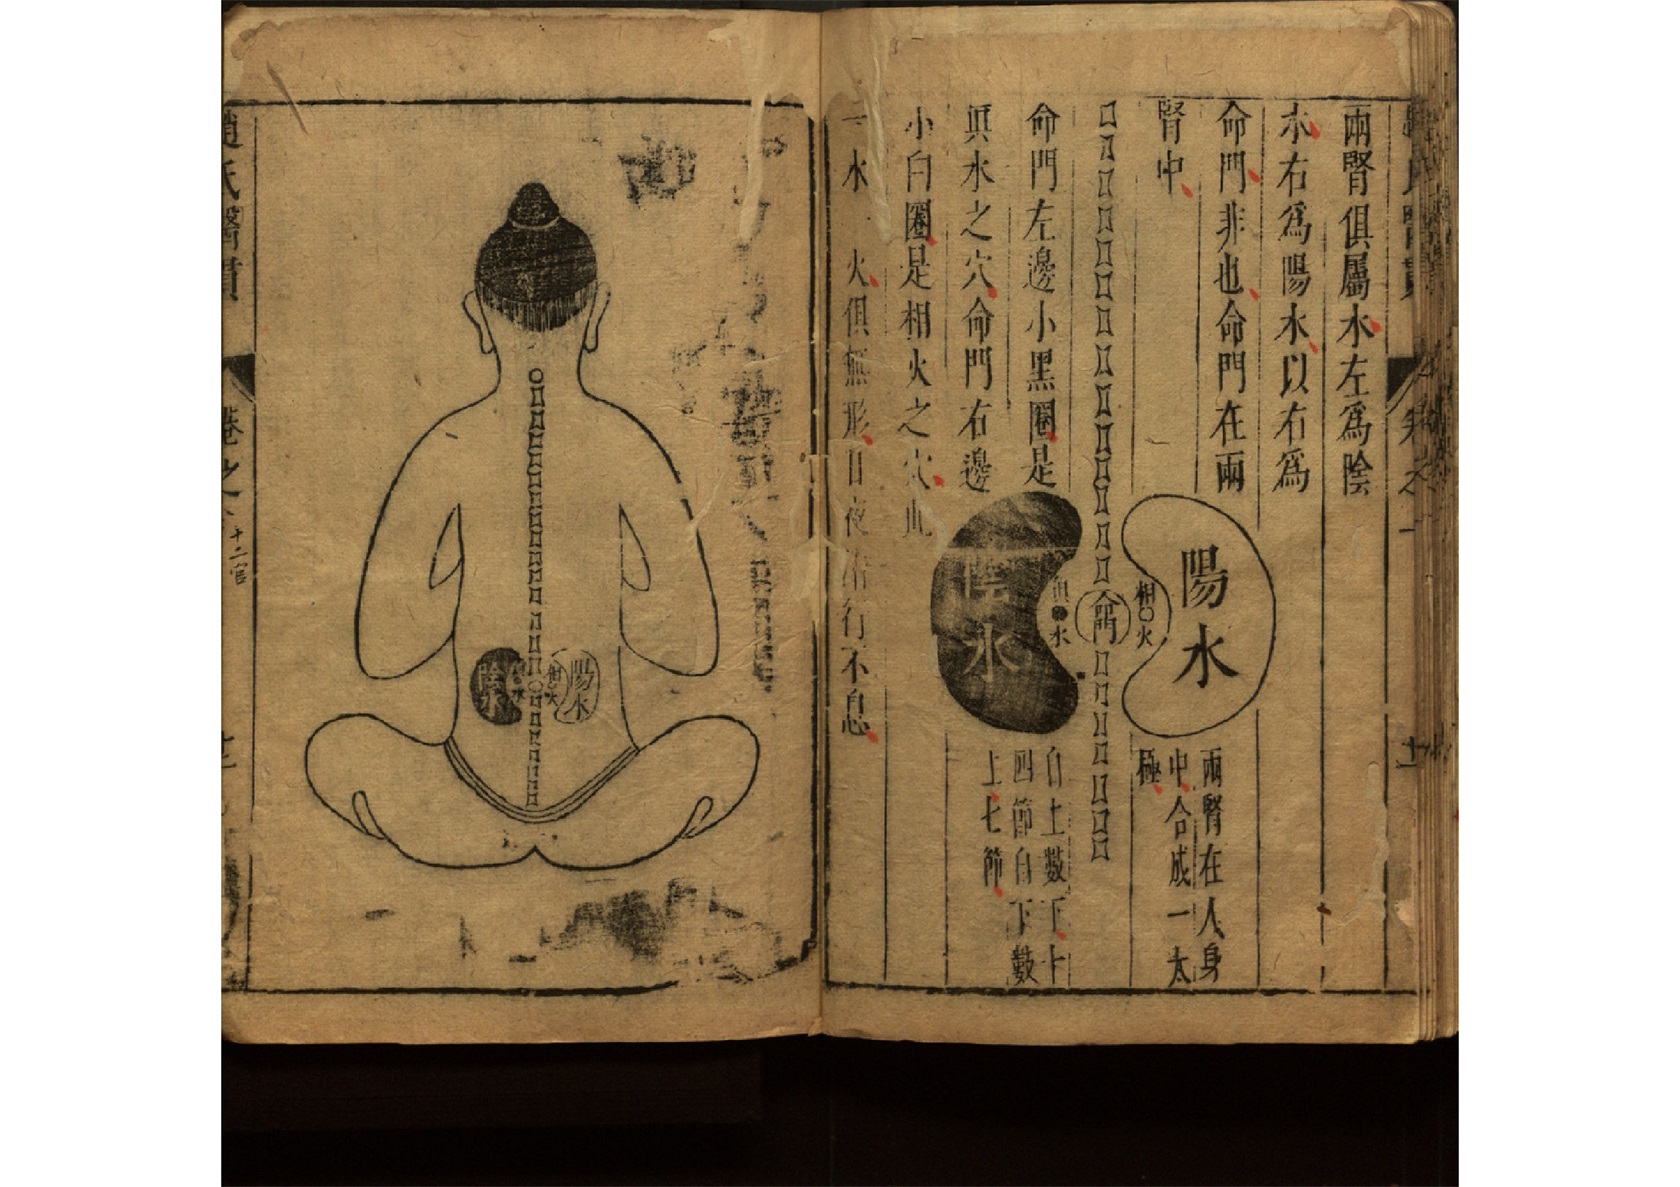 兩腎俱屬水左爲陰
水右爲陽水以右爲
命門非也命門在兩
腎中
命門左邊小黑圈是
眞水之穴命門右邊
小白圈是相火之穴此
一水一火俱無形日夜潛行不息
陽水
相火
命門
眞水
陰水
兩腎在人身
中合成一太
極
自上數下十
四節自下數
上七節
趙氏醫貫
卷之一
十二官
陽水
相火
陰水